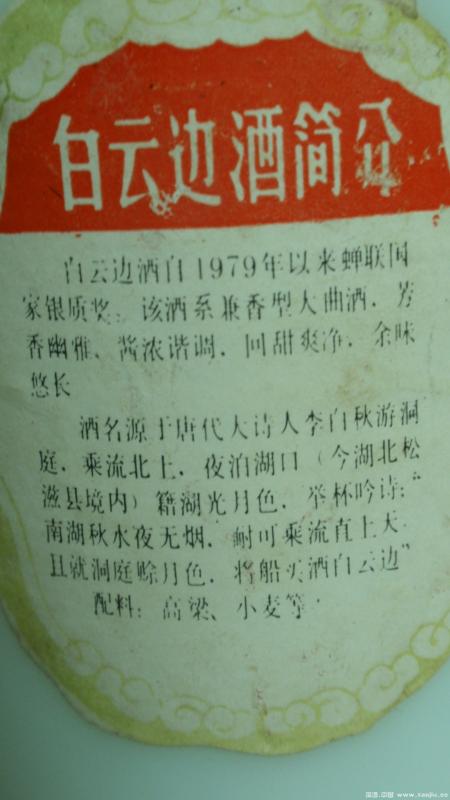 白云边酒简介
白云边酒自1979年以来蝉联国
家银质奖：该酒系兼香型大曲酒．芳
香幽雅、酱浓谐调．回甜爽净．余味
悠长
酒名源于唐代大诗人李白秋游洞
庭．乘流北上．夜泊湖口（今湖北松
滋县境内）籍湖光月色．举杯吟诗：“
南湖秋水夜无烟．耐可乘流直上天．
且就洞庭赊月色．将船买酒白云边”
配料：高梁、小麦等．